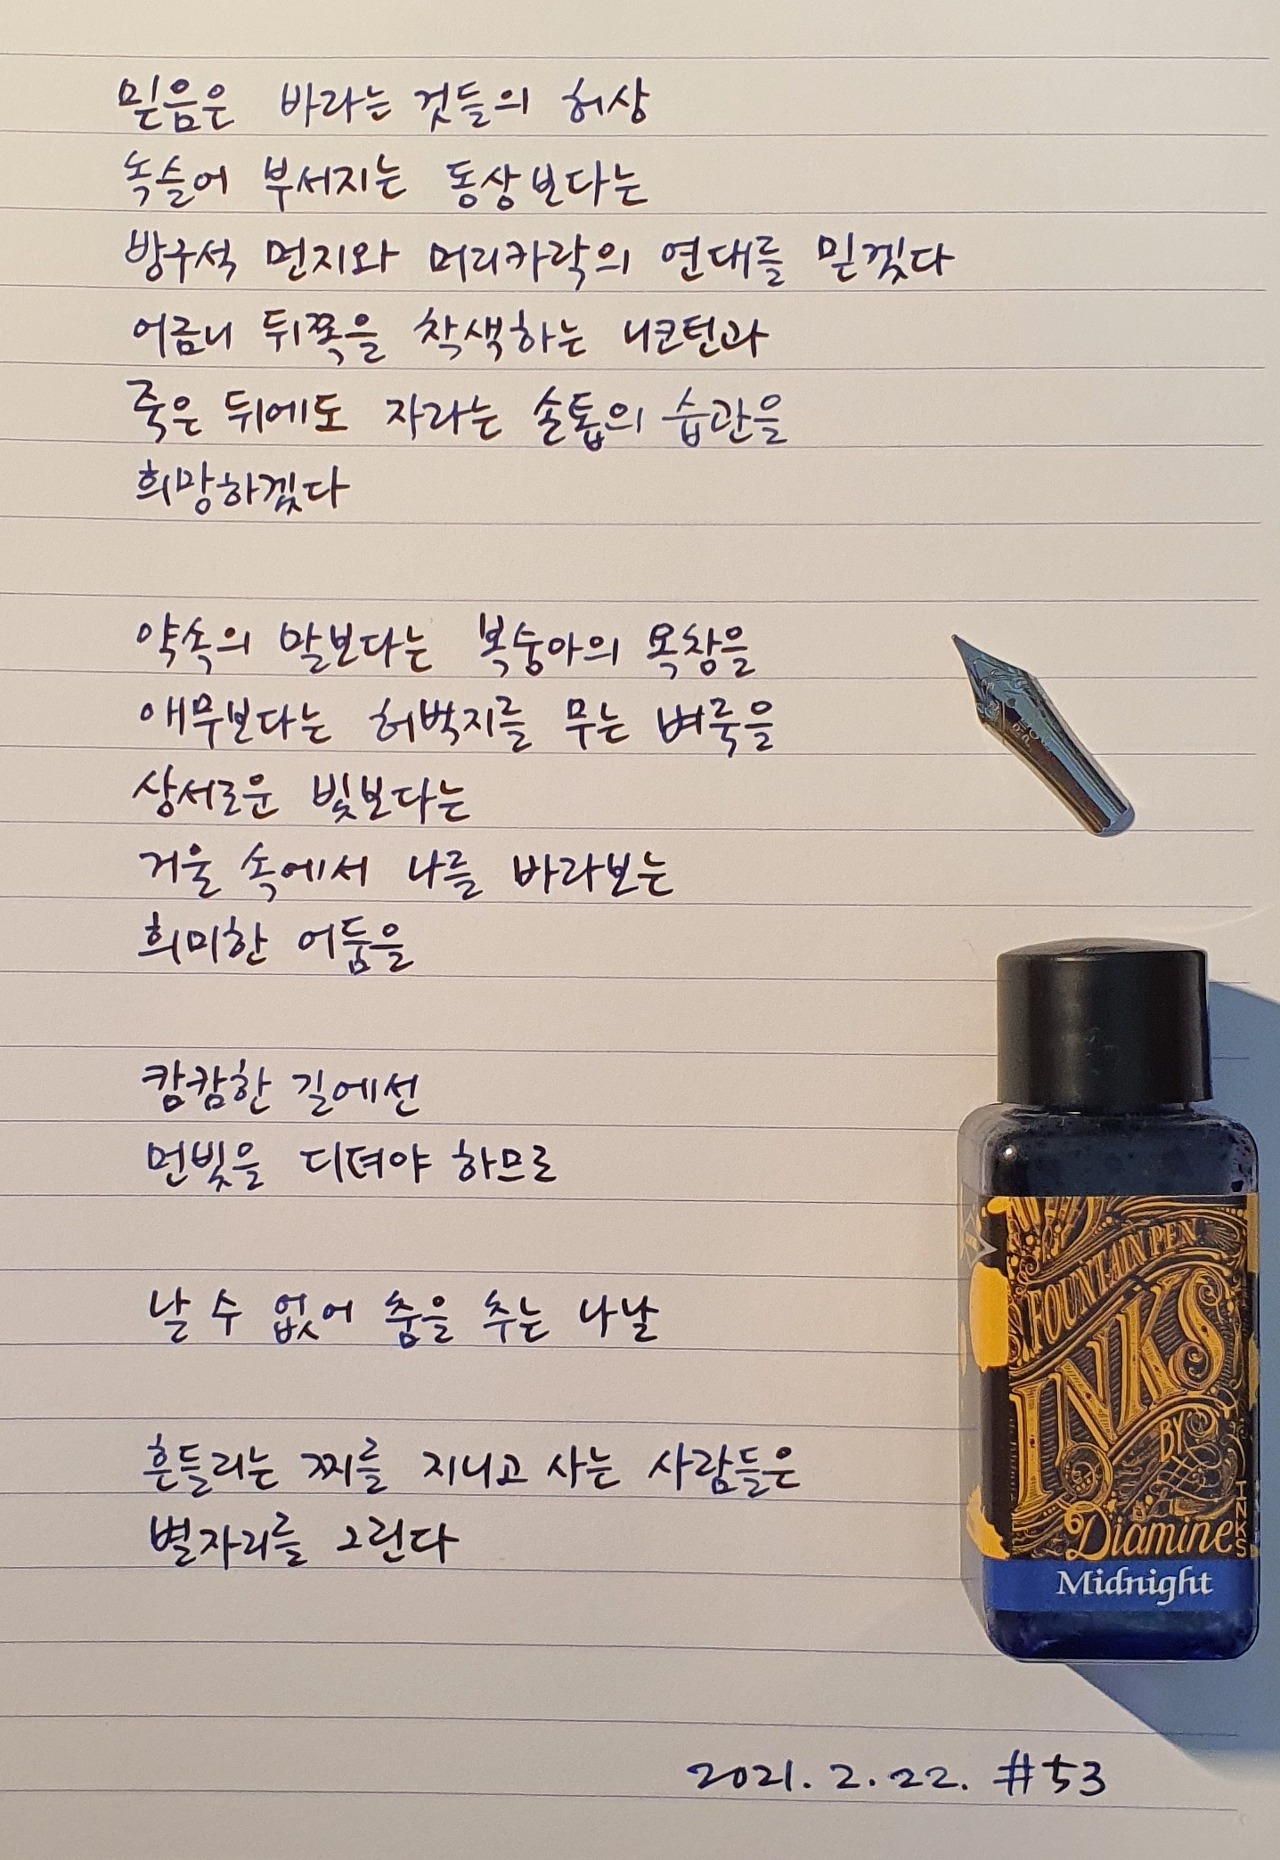 믿음은 바라는 것들의 허상
녹슬어 부서지는 동상보다는
방구석 먼지와 머리카락의 연대를 믿겠다
어금니 뒤쪽을 착색하는 니코틴과
죽은 뒤에도 자라는 손톱의 습관을
희망하겠다
약속의 말보다는 복숭아의 욕창을
애무보다는 허벅지를 무는 벼룩을
상서로운 빛보다는
거울 속에서 나를 바라보는
희미한 어둠을
캄캄한 길에선
먼빛을 디뎌야 하므로
날 수 없어 춤을 추는 나날
흔들리는 찌를 지니고 사는 사람들은
별자리를 그린다
2021. 2. 22. #53
FOUNTAIN PEN
INKS
BY
Diamine
INKS
Midnight